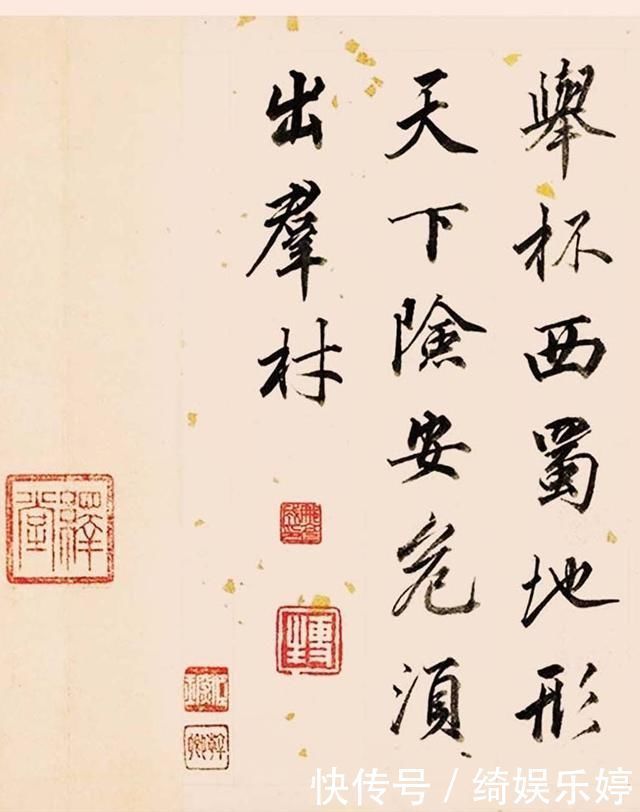 舉杯西蜀地形
天下險安危須
出羣材
快传号 / 绮娱乐婷